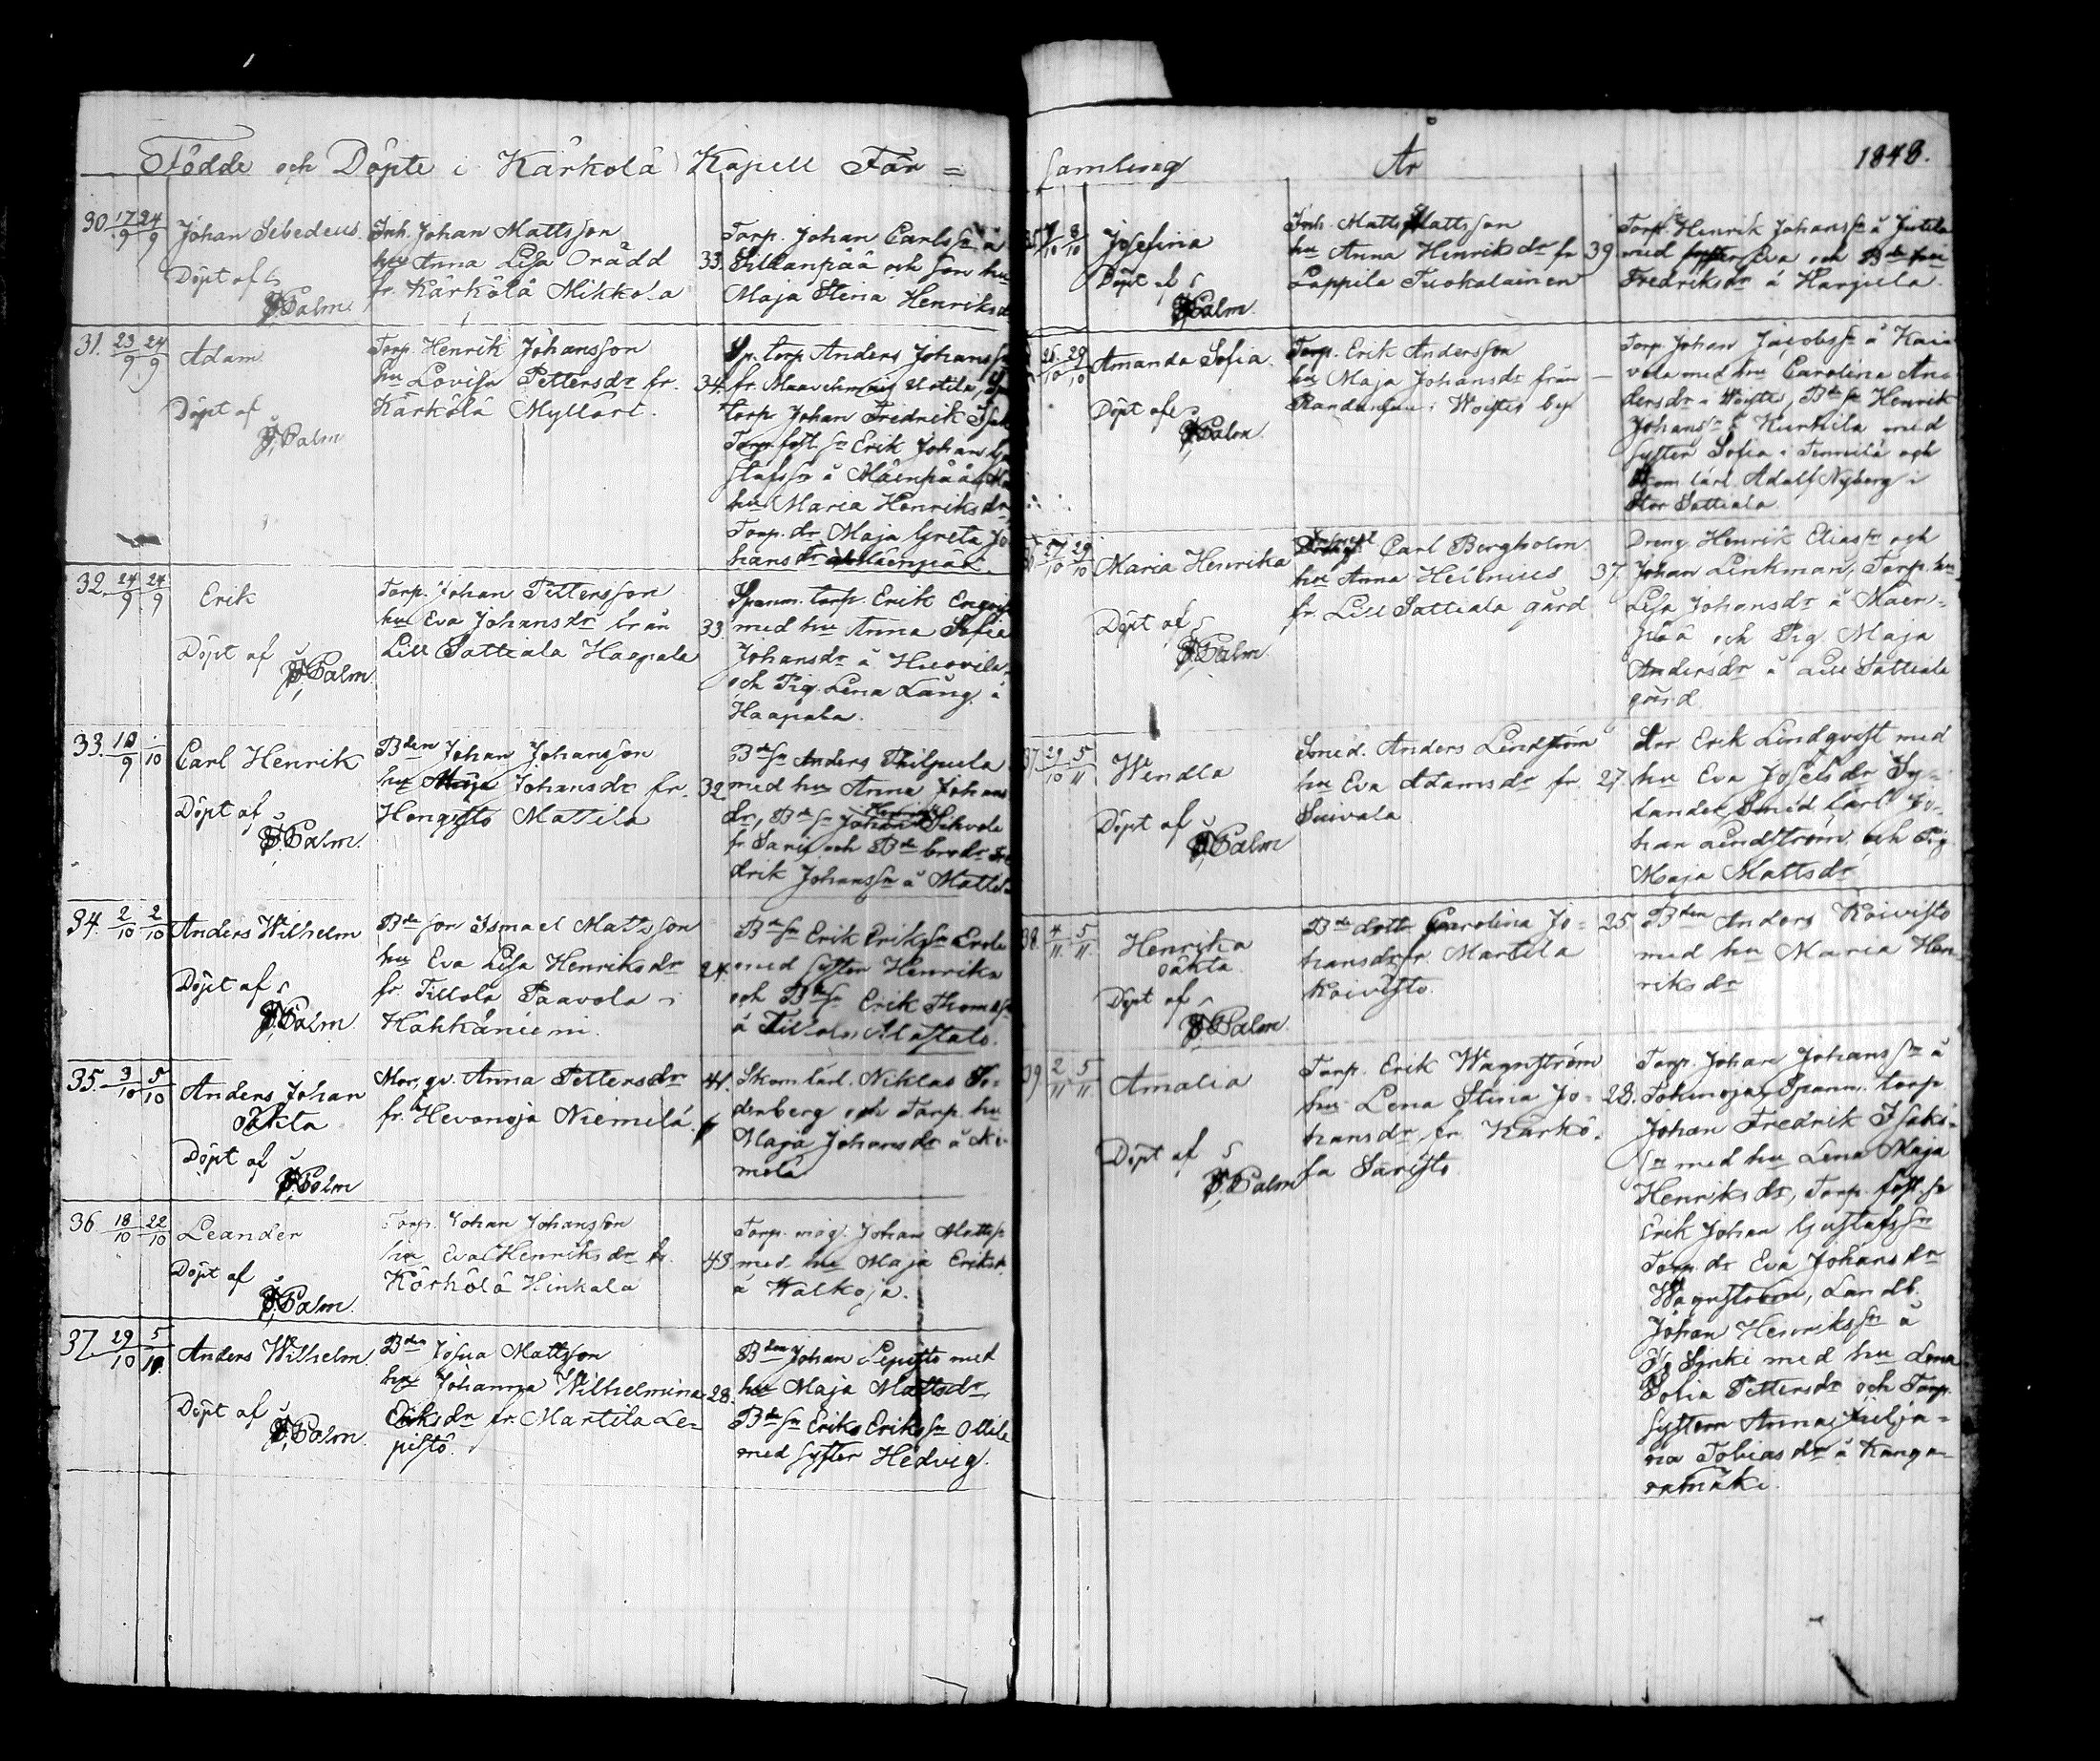 Födde och Döpte i Kärkölä Kapell För=
30. 17/9 24/9 Johan Sebedeus.
Döpt af
Palm.
Inh. Johan Mattsson
hu Anna Lisa Orädd
fr. Kärkölä Mikkola
33.
Torp. Johan Carlssn å
Sillanpää och Son hu
Maja Stina Henriksd
31. 23/9 24/9 Adam
Döpt af
Palm
Torp. Henrik Johansson
hu Lovisa Pettersdr fr.
Kärkölä Mylläri.
34.
Sp. torp Anders Johanss
fr. Uotila,
torp Johan Fredrik Isak
Torp. fost. sn Erik Johan Gu
stafssn å Mäenpää
hu Maria Henriksdr
Torp. dr Maja Greta Jo
hansdr å Mäenpää
32. 24/9 24/9 Erik
Döpt af
Palm
Torp. Johan Pettersson
hu Eva Johansdr från
Lill Sattiala Haapala
33.
Spanm. torp. Erik
med hu Anna Sofia
Johansdr å Huovila
och Pig. Lena Lång å
Haapala.
33. 10/9 /10 Carl Henrik
Döpt af
Palm.
Bden Johan Johansson
hu Maja Johansdr fr.
Hongisto Mattila
32.
Bdesn Anders Philpula
med hu Anna Johans
dr, Bdesn Johan Henrik Sihvola
fr Saris och Bde brodr Fre
drik Johanssn å Mattila
34. 2/10 2/10 Anders Wilhelm
Döpt af
Palm.
Bde son Ismael Mattsson
hu Eva Lisa Henriksdr
fr. Tillola Paavola i
Hähkäniemi.
24.
Bdesn Erik Erikssn Erola
med syster Henrika
och Bdesn Erik Thomassn
å Tillola Alastalo.
35. 3/10 5/10 Anders Johan
oäkta
Döpt af
Palm
Mor, qv. Anna Pettersdr
fr. Hevonoja Niemelä.
41.
Skom. lärl. Niklas Sö=
derberg och Torp. hu
Maja Johansdr å Ni=
melä
36. 18/10 22/10 Leander
Döpt af
Palm.
Torp. Johan Johansson
hu Eva Henriksdr fr.
Kärkölä Hinkala
43.
Torp. måg. Johan Mattss
med hu Maja Eriksdr
å Walkoja.
37. 29/10 5/11. Anders Wilhelm.
Döpt af
Palm.
Bden Josua Mattsson
hu Johanna Wilhelmina
Eriksdr fr. Martila Le=
pistö.
28.
Bden Johan Lepistö med
hu Maja Mattsdr,
Bdesn Eriks Erikssn Ollila
med syster Hedvig.
samling År 1848.
8/10 Josefina
Döpt af
Palm.
Inh. Matts Mattsson
hu Anna Henriksdr fr
Lappila Tuokalainen
39.
Torp. Henrik Johanssn å Jutila
med syster Eva och
Fredriksdr å Hangula.
25/10 29/10 Amanda Sofia.
Döpt af
Palm.
Torp. Erik Andersson
hu Maja Johansdr från
i Woistes by
—
Torp. Johan Jacobssn å Kai
vola med hu Carolina An=
dersdr i Woiste, Bdesn Henrik
Johanssn å Kurkila med
syster Sofia i Tennilä och
Skom. lärl. Adolf Nyberg i
Stor Sattiala
27/10 29/10 Maria Henrika
Döpt af
Palm.
Carl Bergholm.
hu Anna Helenius
fr. Lill Sattiala gård
37.
Dreng. Henrik Eliassn och
Johan Linkman, Torp. hu
Lisa Johansdr å Mäen=
pää och Pig. Maja
Andersdr å Lill Sattiala
gård.
37. 29/10 5/11 Wendla
Döpt af
Palm
Smed. Anders Lindström
hu Eva Adamsdr fr.
Suivala.
27.
Erik Lindqvist med
hu Eva Josefsdr Sy=
lander, Smed. lärl. Jo=
han Lindström och Pig
Maja Mattsdr
38. 4/11. 5/11. Henrika
oäkta
Döpt af
Palm.
Bde dott. Carolina Jo=
hansdr fr. Martila
Koivisto.
25.
Bden Anders Koivisto
med hu Maria Hen
riksdr
39. 2/11. 5/11. Amalia
Döpt af
Palm
Torp. Erik Wagnström
hu Lena Stina Jo=
hansdr, fr. Kärkö=
la Saristo.
28.
Torp. Johan Johanssn å
Tokinoja, Spanm. torp
Johan Fredrik Isaks=
sn med hu Lena Maja
Henriksdr, Torp. fost. sn
Erik Johan Gustafssn
Torp. dr Eva Johansdr
Wagnström, Landb.
Johan Henrikssn å
med hu Lena
Sofia Pettersdr och Torp.
systern Anna Julja=
na Tobiasdr å Kanga=
ramäki.